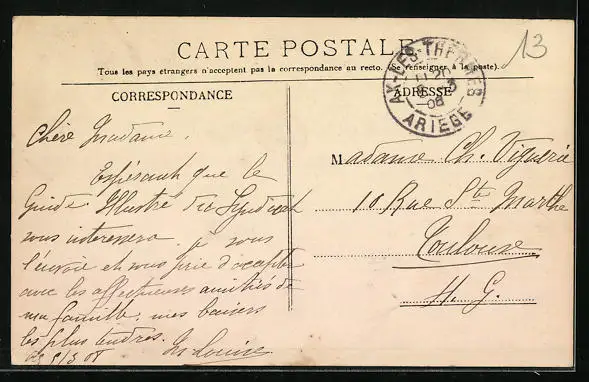 CARTE POSTALE
Tous les pays étrangers n'acceptent pas la correspondance au recto. (Se renseigner à la poste).
13
AX-LES-THERMES
8 3
08
ARIEGE
CORRESPONDANCE
Chère Madame,
Espérant que le
Guide Illustré du Syndicat
vous interessera je vous
l'envoie et vous prie d'accepter
avec les affectueuses amitiés de
ma famille, mes baisers
les plus tendres.
8/3 08 Louise
ADRESSE
Madame Ch. Viguerie
10 Rue Ste Marthe
Toulouse
H. G.